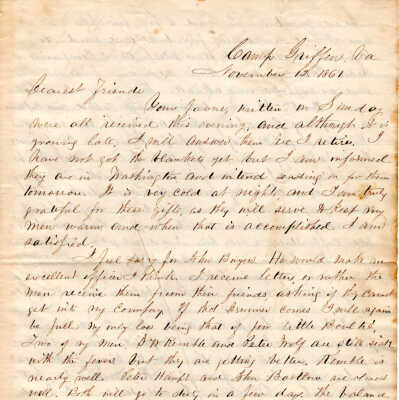 Camp Griffin, Va
November 12. 1861
Dearest Friends
Your favors, written on Sunday
were all received this evening, and although it is
growing late, I will answer them ere I retire. I
have not got the blankets yet but I am informed
they are in Washington and intend sending on for them
tomorrow. It is very cold at night, and I am truly
grateful for these Gifts, as they will serve to keep my
men warm and when that is accomplished I am
satisfied.
I feel sorry for John He would make an
excellent officer I think. I receive letters or rather the
men receive them from their friends asking if they cannot
get into my Company. If that drummer comes I will again
be full my only loss being that of poor little
Two of my men Kremble and Peter Wolf are still sick
with the fever but they are getting better. Kremble is
nearly well. Peter Haupt and John Barlow are almost
well. Both will go to duty in a few days the balance